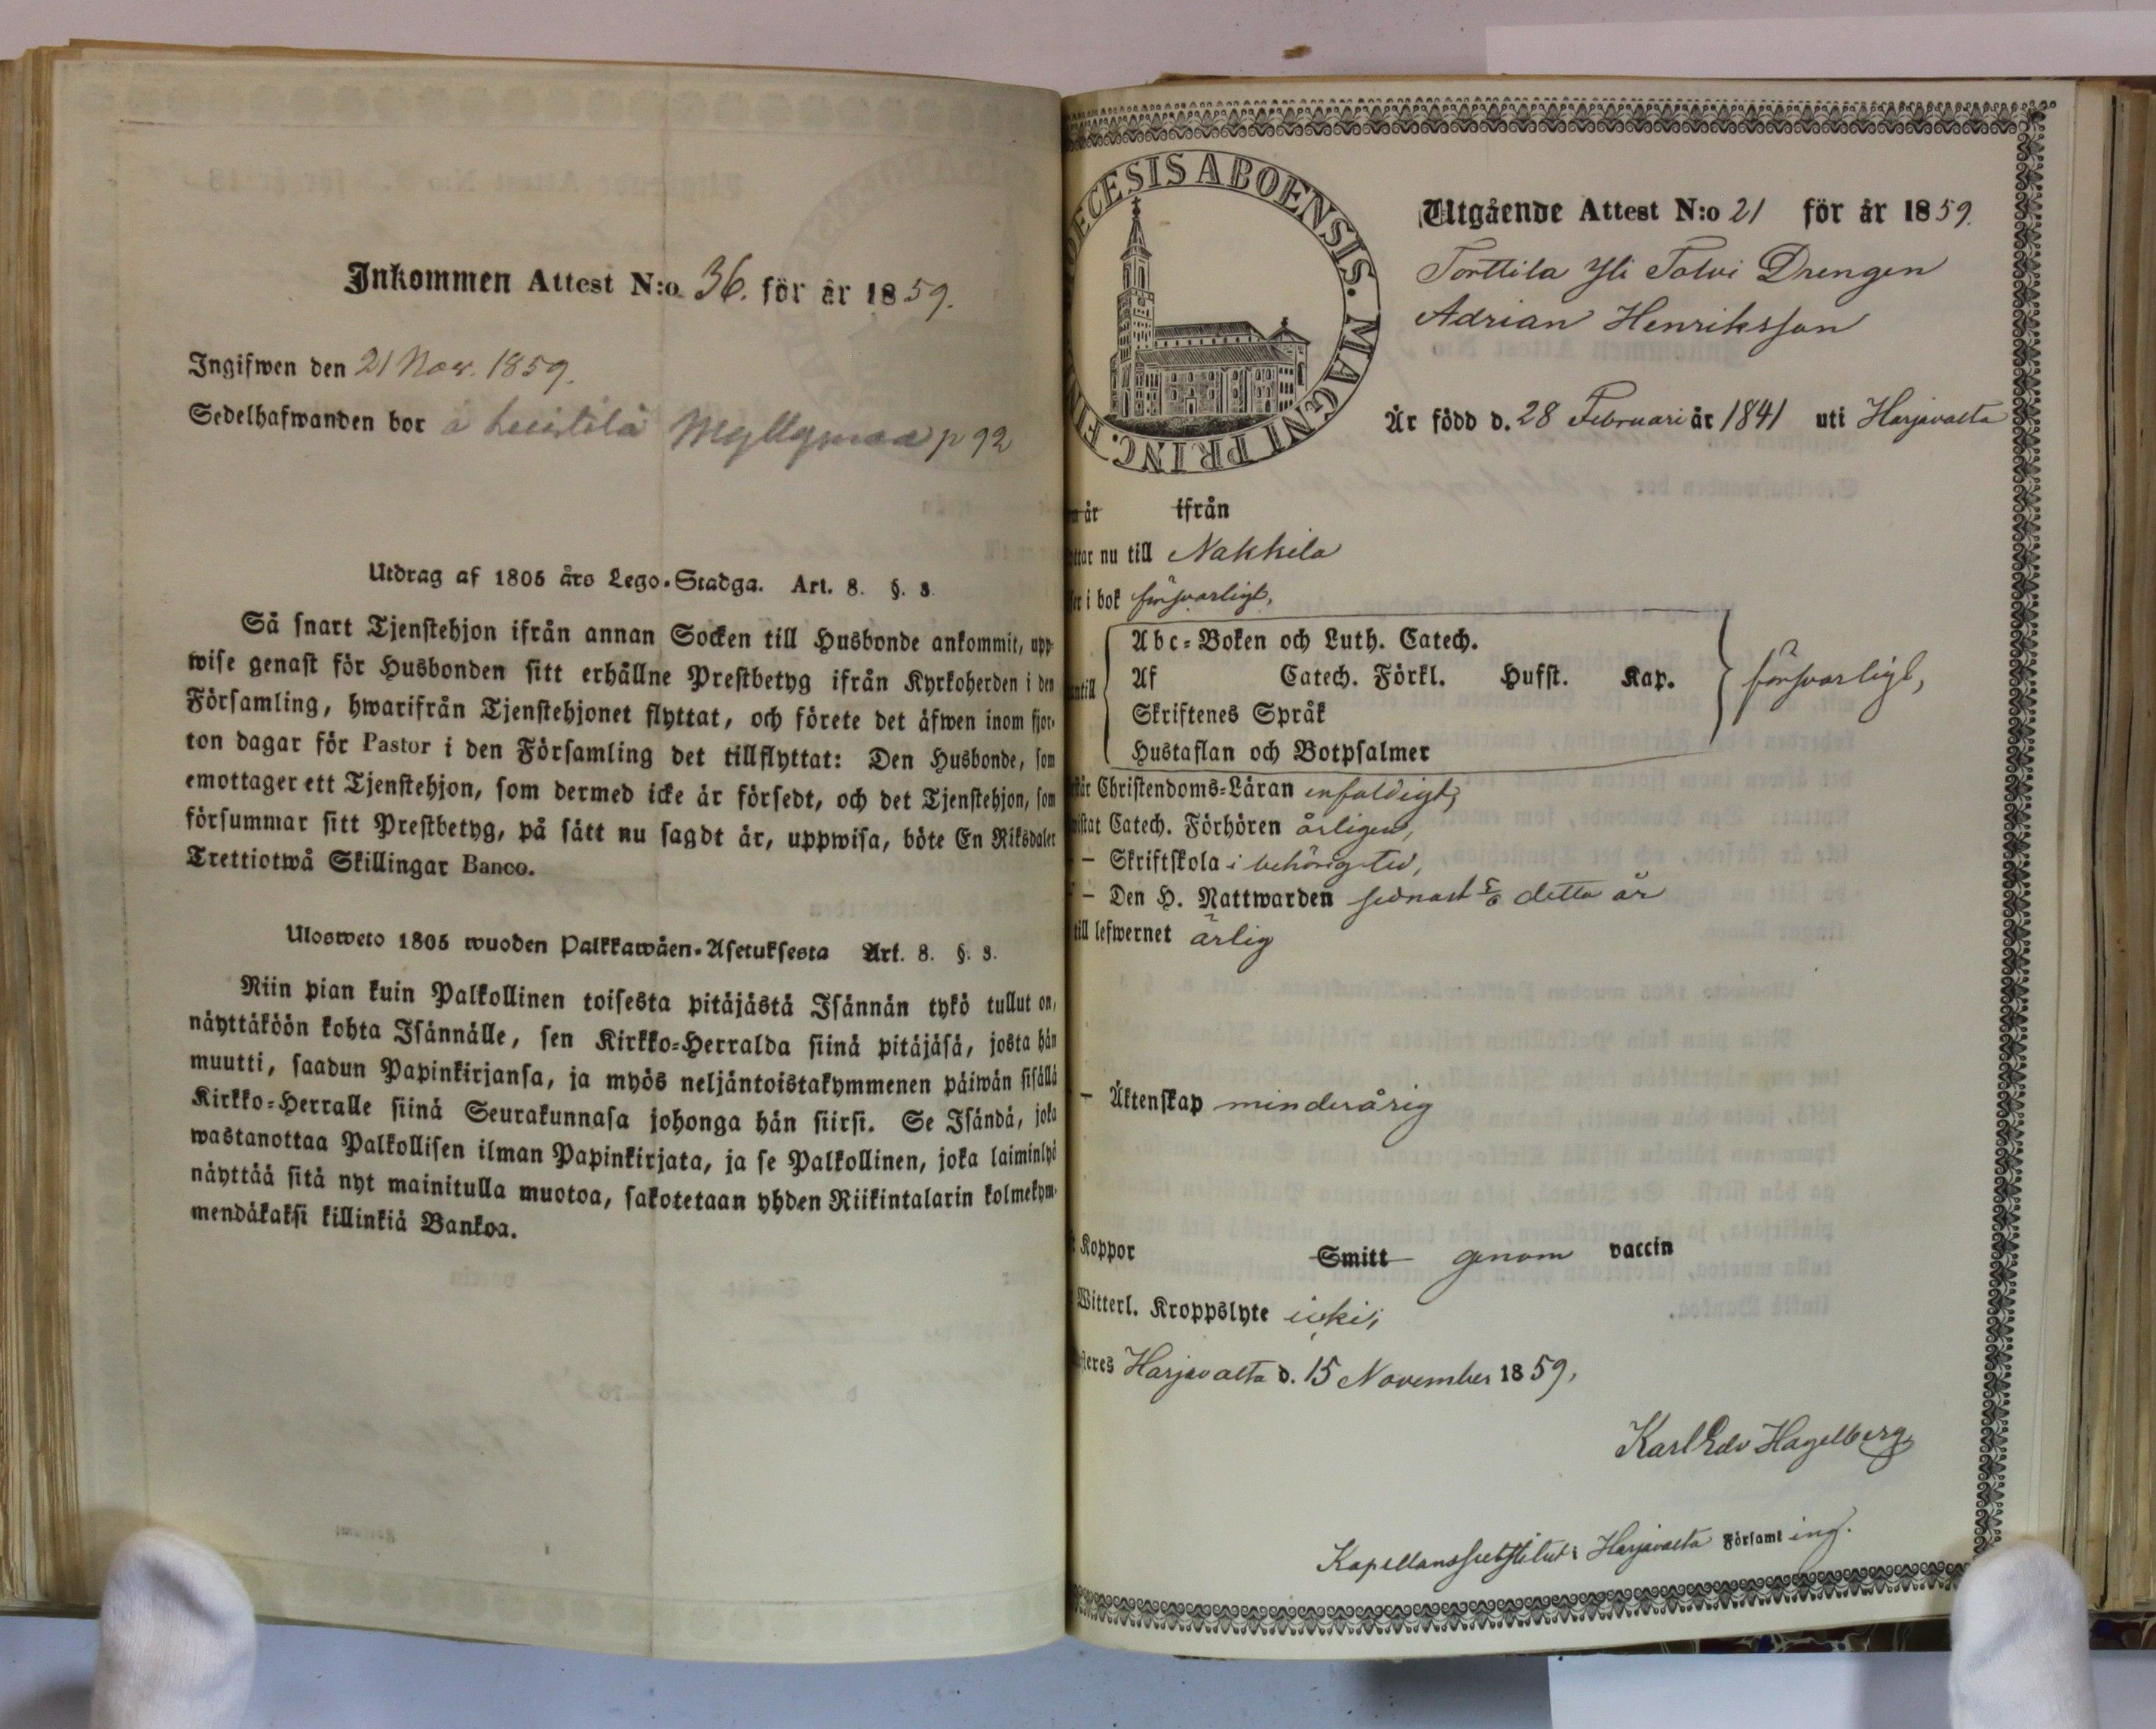 Inkommen Attest N:o 36. för år 1859.
Ingifwen den 21 Nov. 1859.
Sedelhafwanden bor å Leistilä Myllymaa p 92
Utdrag af 1805 års Lego-Stadga. Art. 8. §. 3.
Så snart Tjenstehjon ifrån annan Socken till Husbonde ankommit, upp-
wise genast för Husbonden sitt erhållne Prestbetyg ifrån Kyrkoherden i den
Församling, hwarifrån Tjenstehjonet flyttat, och förete det äfwen inom fjor-
ton dagar för Pastor i den Församling det tillflyttat: Den Husbonde, som
emottager ett Tjenstehjon, som dermed icke är försedt, och det Tjenstehjon, som
försummar sitt Prestbetyg, på sätt nu sagdt är, uppwisa, böte En Riksdaler
Trettiotwå Skillingar Banco.
Ulosweto 1805 wuoden Palkkawäen-Asetuksesta Art. 8. §. 3.
Niin pian kuin Palkollinen toisesta pitäjästä Isännän tykö tullut on,
näyttäköön kohta Isännälle, sen Kirkko-Herralda siinä pitäjäsä, josta hän
muutti, saadun Papinkirjansa, ja myös neljäntoistakymmenen päiwän sisällä
Kirkko-Herralle siinä Seurakunnasa johonga hän siirsi. Se Isändä, joka
wastanottaa Palkollisen ilman Papinkirjata, ja se Palkollinen, joka laiminlyö
näyttää sitä nyt mainitulla muotoa, sakotetaan yhden Riikintalarin kolmekym-
mendäkaksi killinkiä Bankoa.
CESIS ABOENSIS. MAGNI PRINC. FIN
Utgående Attest N:o 21 för år 1859.
Torttila Yli Talvi Drengen
Adrian Henriksson
Är född d. 28 Februari år 1841 uti Harjavalta
år ifrån
ttar nu till Nakkila
er i bok försvarligt,
Abc-Boken och Luth. Catech.
antill Af Catech. Förkl. Husst. Kap. försvarligt,
Skriftenes Språk
Hustaflan och Botpsalmer
tår Christendoms-Läran enfaldigt,
istat Catech. Förhören årligen,
– Skriftskola i behörig tid,
– Den H. Nattwarden sednast detta år
till lefwernet ärlig
– Äktenskap minderårig
Koppor Smitt genom vaccin
Witterl. Kroppslyte icke;
teres Harjavalta d. 15 November 1859.
Karl Edv Hagelberg
Kapellanssubstitut i Harjavalta Församling.